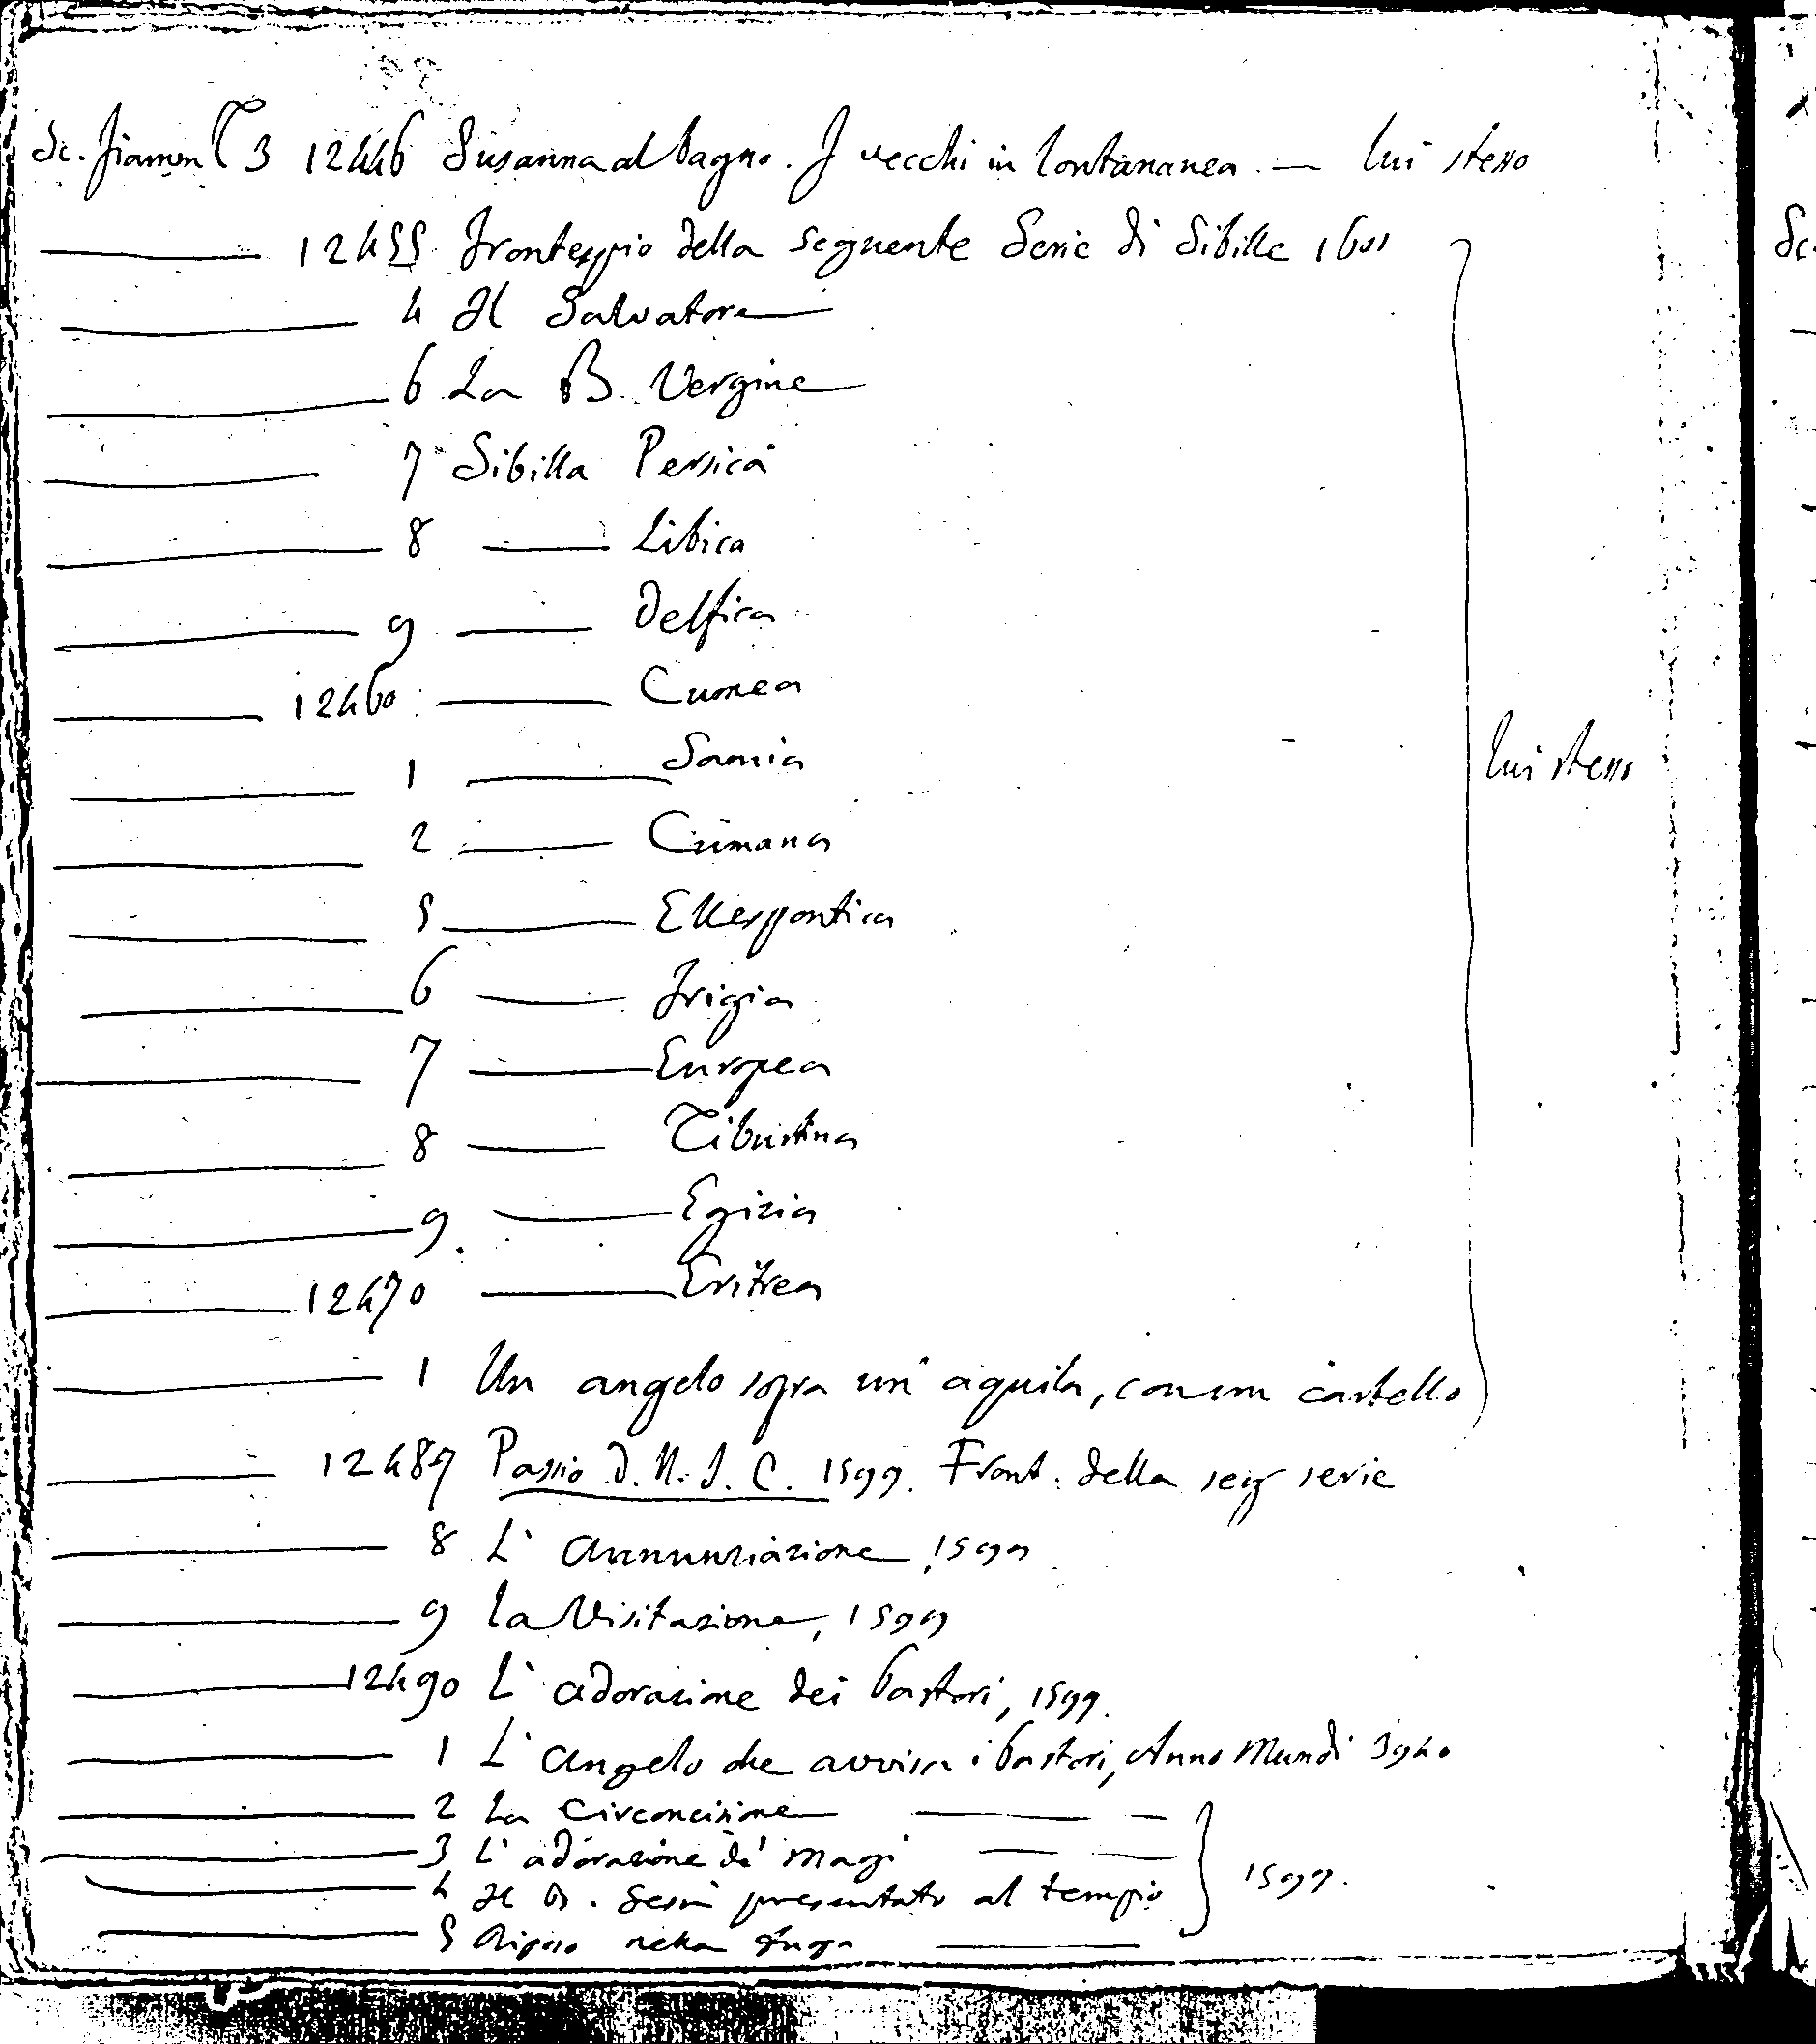 Sc. fiamm T 3 12446 Susanna al bagno. I vecchi in lontananza. — lui stesso
12455 Frontespizio della seguente Serie di Sibille 1601
4 Il Salvatore
6 La B. Vergine
7 Sibilla Persica
8 — Libica
9 — Delfica
12460 — Cumea
1 — Samia
2 — Cumana
5 — Ellespontica
6 — Frigia
7 — Europea
8 — Tiburtina
9 — Egizia
12470 — Eritrea
1 Un angelo sopra un' aquila, con un cartello
lui stesso
12487 Passio D. N. J. C. 1599. Front. della seg serie
8 L' Annunziazione, 1599
9 la Visitazione, 1599
12490 L' adorazione dei Pastori, 1599.
1 L' Angelo che avvisa i Pastori, Anno Mundi 3940
2 La Circoncisione
3 L' adorazione de' Magi
4 Il B. Gesù presentato al tempio
5 Riposo nella fuga
1599.